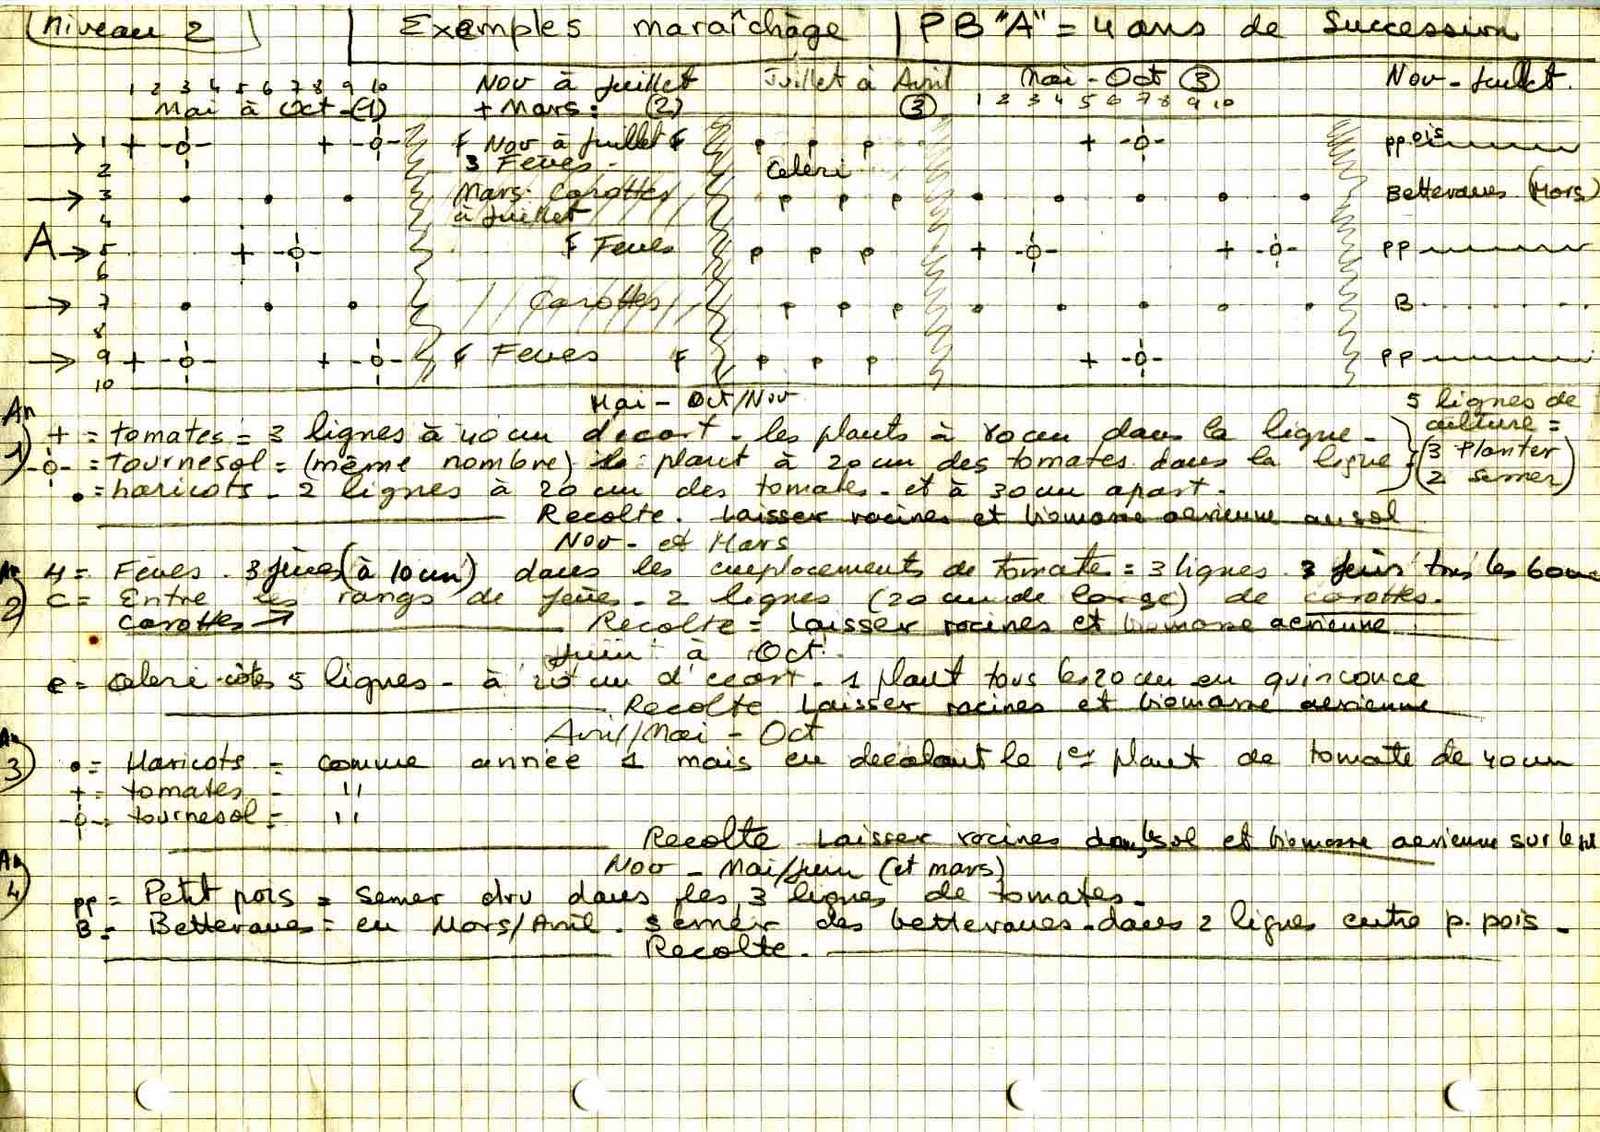 Niveau 2 | Exemples maraîchage | PB "A" = 4 ans de Succession
1 2 3 4 5 6 7 8 9 10 Nov à Juillet Juillet à Avril Mai - Oct (3) Nov - Juillet.
Mai à Oct (1) + Mars : (2) (3) 1 2 3 4 5 6 7 8 9 10
→ 1 + -o- + -o- F Nov à Juillet F p p p + -o- pp ois
2 3 Feves - Celeri
→ 3 • • • Mars: Carottes p p p • • • • • Betteraves (Mars)
4 à Juillet
A → 5 + -o- F Feves p p p + -o- + -o- pp
6
→ 7 • • • Carottes p p p • • • • • B . . . . .
8
→ 9 + -o- + -o- F Feves F p p p + -o- pp
10
Mai - Oct/Nov 5 lignes de
An 1) + = tomates = 3 lignes à 40 cm d'ecart - les plants à 80 cm dans la ligne - culture =
-o- = tournesol = (même nombre) plant à 20 cm des tomates dans la ligne (3 Planter
• = haricots - 2 lignes à 20 cm des tomates - et à 30 cm apart. 2 semer)
Recolte. Laisser racines et biomasse aerienne au sol
Nov - et Mars
An 2) = Feves . 3 feves (à 10 cm) dans les emplacements de tomate = 3 lignes . 3 tous les 60 cm
C = Entre les rangs de feves - 2 lignes (20 cm de large) de carottes.
Carottes → Recolte = Laisser racines et biomasse aerienne
Juin à Oct.
= celeri côtes 5 lignes - à 20 cm d'ecart - 1 plant tous les 20 cm en quinconce
Recolte Laisser racines et biomasse aerienne
Avril/Mai - Oct
An 3) • = Haricots = comme annee 1 mais en decalant le 1er plant de tomate de 40 cm
+ = tomates = "
-o- = tournesol = "
Recolte Laisser racines dans le sol et biomasse aerienne sur le sol
Nov - Mai/Juin (et mars)
An 4) pp = Petit pois = semer dru dans les 3 lignes de tomates.
B = Betteraves = en Mars/Avril . semer des betteraves dans 2 lignes entre p. pois -
Recolte.